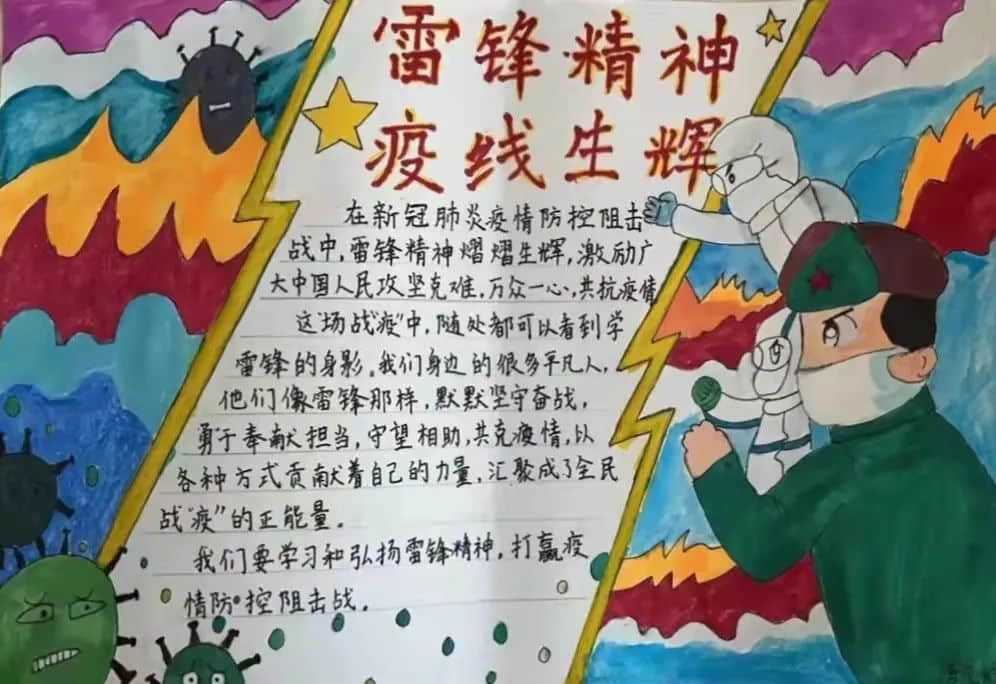 雷锋精神
疫线生辉
在新冠肺炎疫情防控阻击
战中,雷锋精神熠熠生辉,激励广
大中国人民攻坚克难,万众一心,共抗疫情
这场战“疫”中,随处都可以看到学
雷锋的身影。我们身边的很多平凡人,
他们像雷锋那样,默默坚守奋战,
勇于奉献担当,守望相助,共克疫情,以
各种方式贡献着自己的力量,汇聚成了全民
战“疫”的正能量。
我们要学习和弘扬雷锋精神,打赢疫
情防控阻击战。